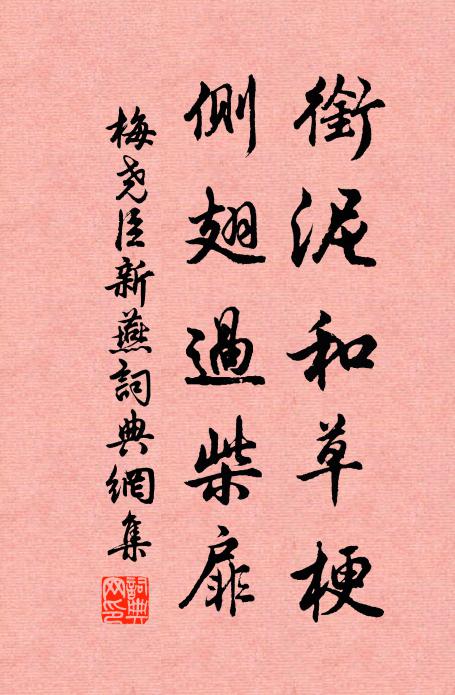 銜泥和草梗
側翅過柴扉
梅尧臣新燕詞典網集
詞典網印